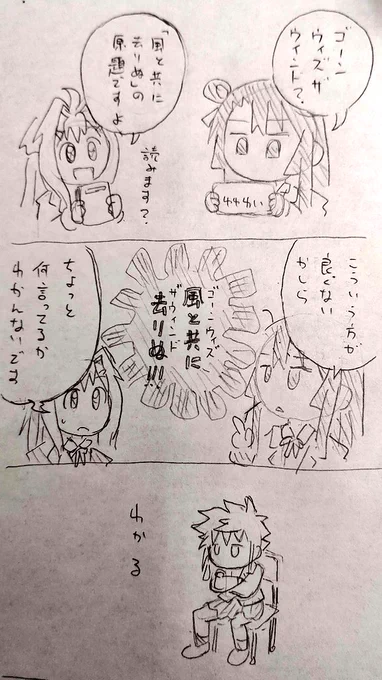 ゴーン
ウィズザ
ウインド?
「風と共に
去りぬ」の
原題ですよ
読みます?
こういう方が
良くない
かしら
ゴーンウィズ
ザウインド
風と共に
去りぬ!!!
ちょっと
何言ってるか
わかんないです
わかる